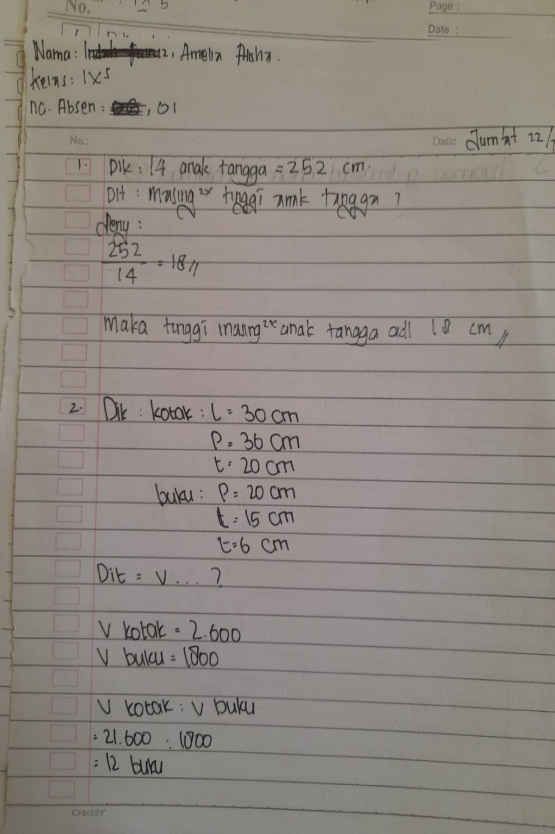 No. IX 5
Page :
Date :
Nama: , Amelia Aisha.
Kelas: IX5
no. Absen : , 01
No.:
Date: Jum'at 22/
1. Dik : 14 anak tangga = 252 cm.
Dit : masing²ˣ tinggi anak tangga ?
Peny :
252
14 = 18 //
Maka tinggi masing²ˣ anak tangga adl 18 cm //
2. Dik : kotak : L = 30 cm
P = 36 cm
t = 20 cm
buku : P = 20 cm
t = 15 cm
t = 6 cm
Dit = V ... ?
V kotak = 2.600
V buku = 1800
V kotak : V buku
= 21.600 : 1800
= 12 buku